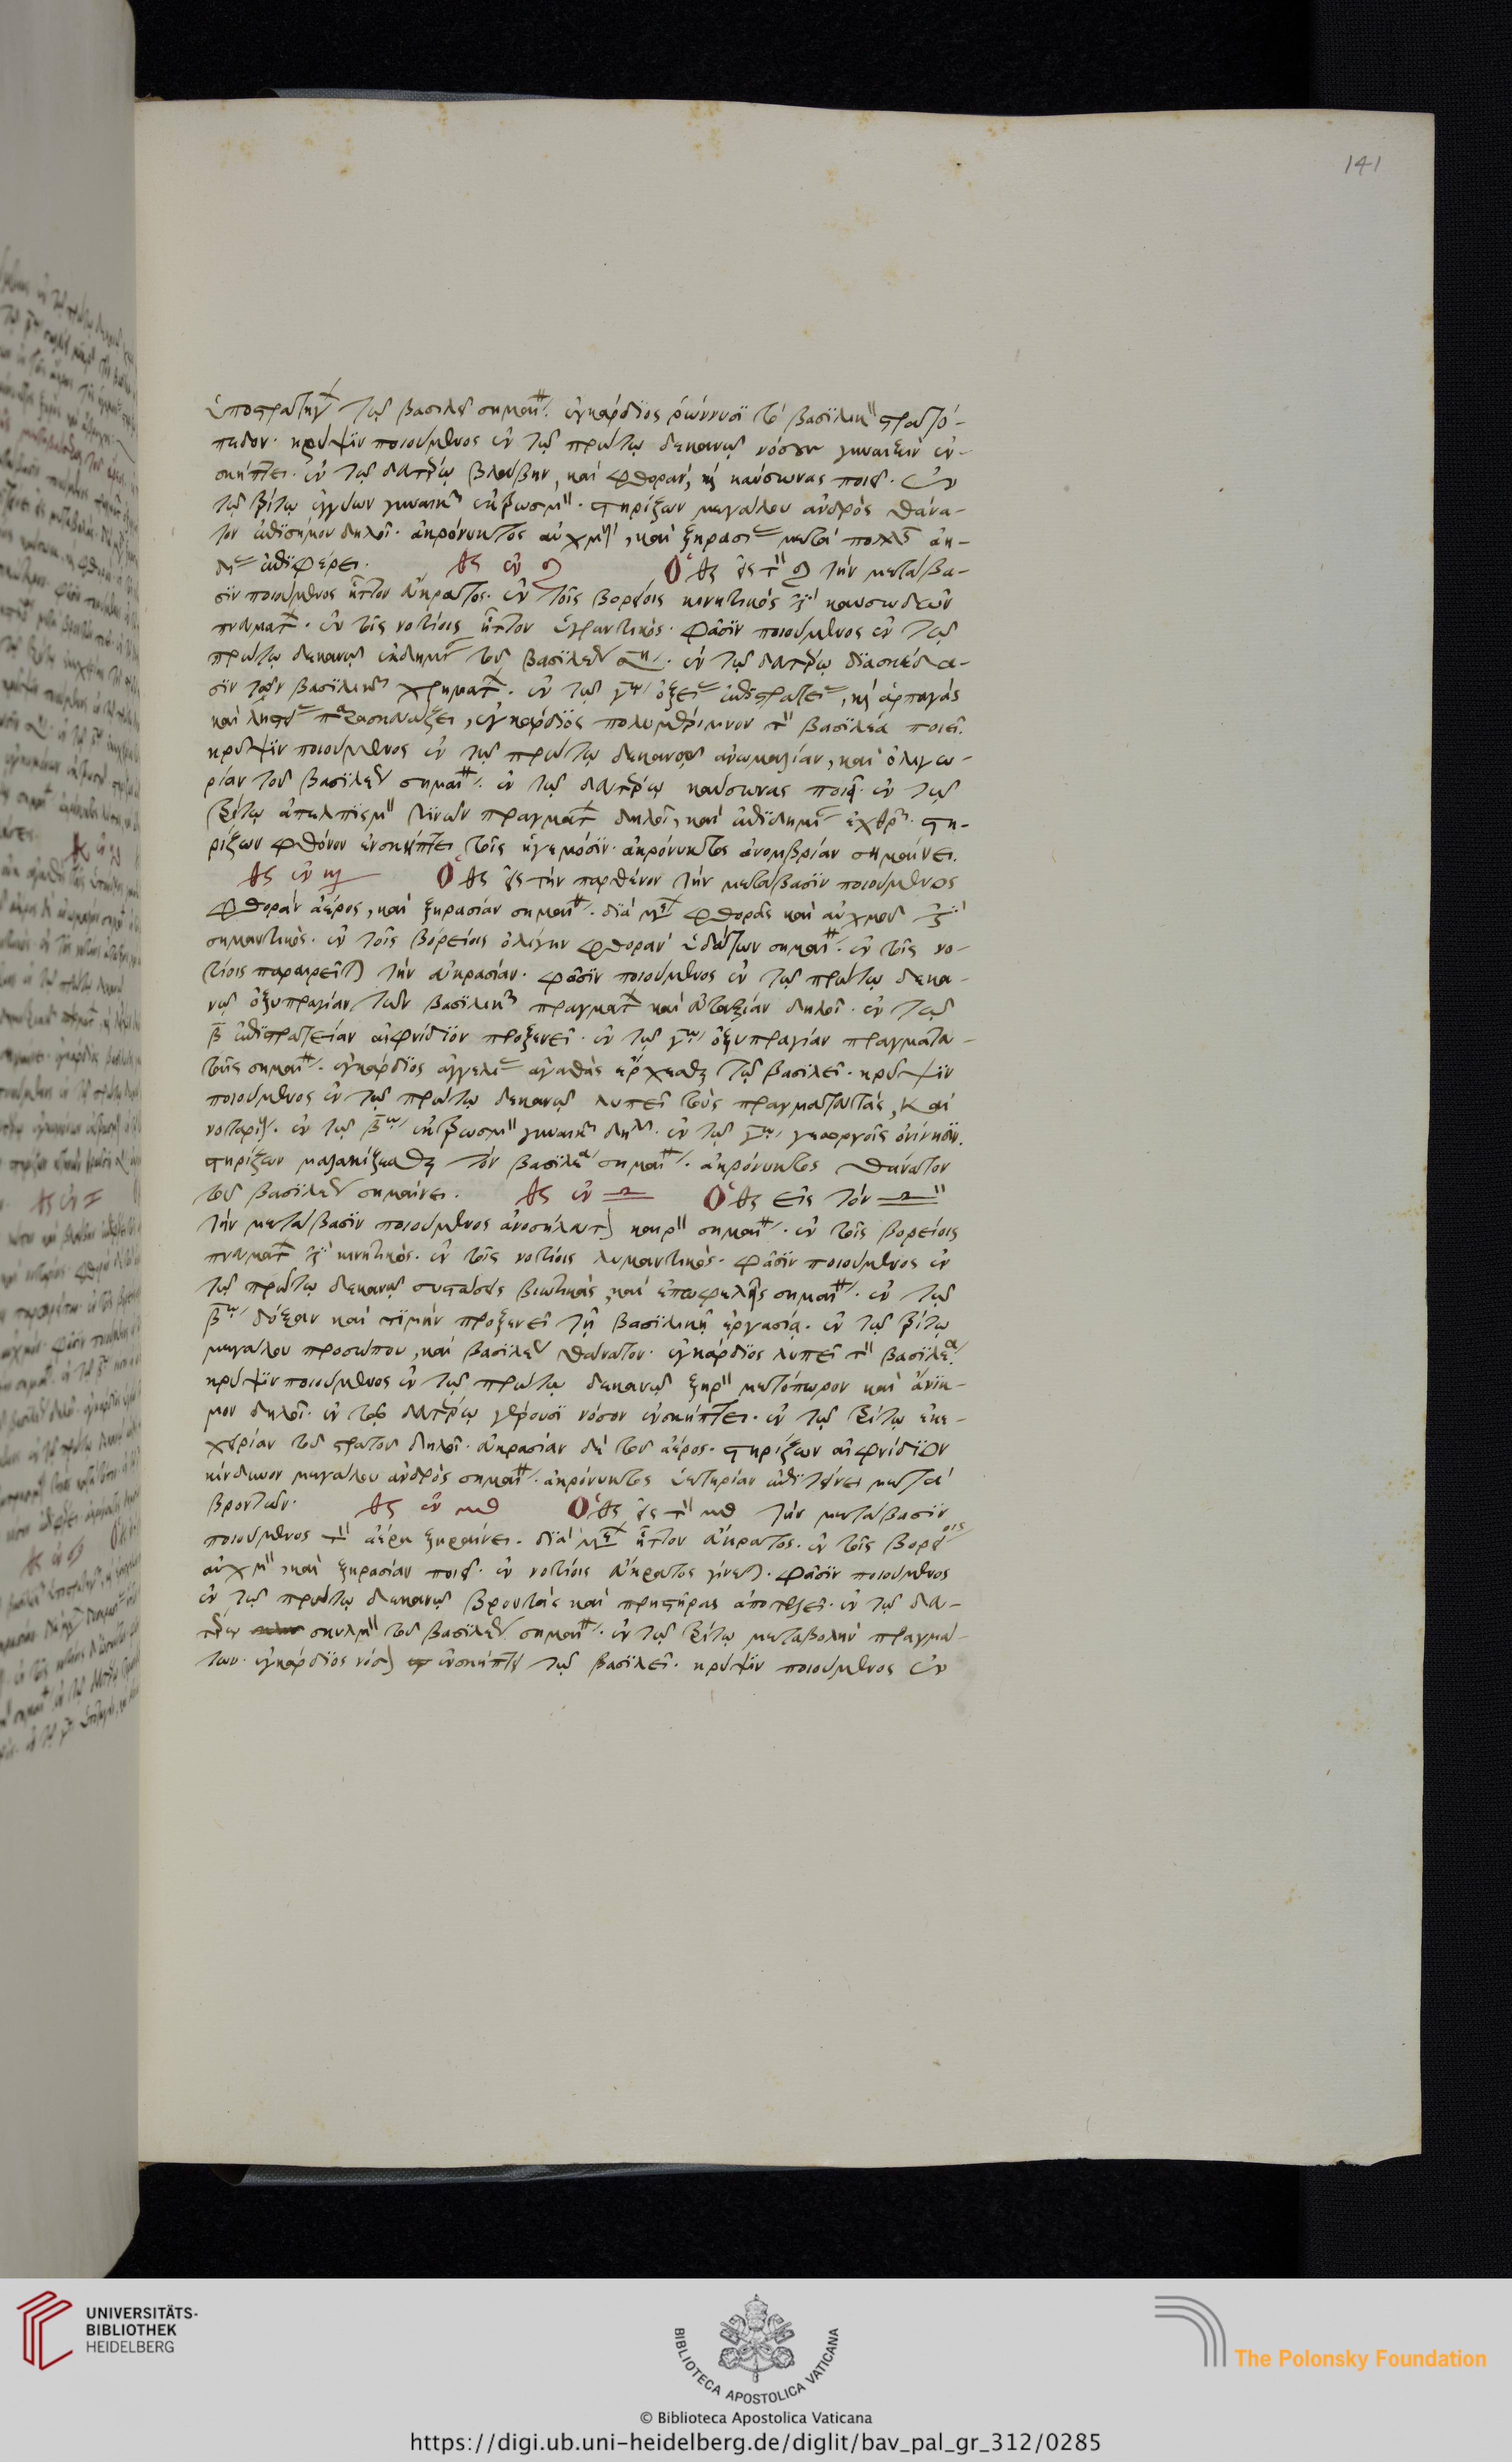 141
τῷ βασιλεῖ σημαί. ἐγκάρδιος ῥώννυσι τὸ βασιλικὸν στρατό-
πεδον. κρύψιν ποιούμενος ἐν τῷ πρώτῳ δεκανῷ νόσον γυναιξὶν ἐν-
σκήπτει. ἐν τῷ δευτέρῳ βλάβην, καὶ φθορὰν, καὶ καύσωνας ποιεῖ. ἐν
τῷ τρίτῳ ἐγγύων γυναικῶν ἐκτρωσμὸν. στηρίζων μεγάλου ἀνδρὸς θάνα-
τον ἐπισήμου δηλοῖ. ἀκρόνυκτος αὐχμὸν, καὶ ξηρασίαν μετὰ πολλῆς ἀη-
δίας ἐπιφέρει. ♃ ἐν ♌ Ὁ ♃ εἰς τὸν ♌ τὴν μετάβα-
σιν ποιούμενος ἧττον εὔκρατος. ἐν τοῖς βορείοις κινητικός ἐστι καυσωδῶν
πνευμάτων. ἐν τοῖς νοτίοις ἧττον ὑγραντικός. φάσιν ποιούμενος ἐν τῷ
πρώτῳ δεκανῷ ἐκδημίαν τοῦ βασιλέως. ἐν τῷ δευτέρῳ διασκέδα-
σιν τῶν βασιλικῶν χρημάτων. ἐν τῷ γʹ ὀξείας ἐπιστρατείας, καὶ ἁρπαγὰς
καὶ λῃστείας παρασκευάζει, ἐγκάρδιος πολυμέριμνον τὸν βασιλέα ποιεῖ.
κρύψιν ποιούμενος ἐν τῷ πρώτῳ δεκανῷ ἀνωμαλίαν, καὶ ὀλιγω-
ρίαν τοῦ βασιλέως σημαί. ἐν τῷ δευτέρῳ καύσωνας ποιεῖ. ἐν τῷ
τρίτῳ ἀπελπισμὸν τινῶν πραγμάτων δηλοῖ, καὶ ἐπιδημίαν ἐχθρῶν. στη-
ρίζων φθόνον ἐνσκήπτει τοῖς ἡγεμόσιν. ἀκρόνυκτος ἀνομβρίαν σημαίνει.
♃ ἐν ♍ Ὁ ♃ εἰς τὴν παρθένον τὴν μετάβασιν ποιούμενος
φθορὰν ἀέρος, καὶ ξηρασίαν σημαί. διὰ φθορᾶς καὶ αὐχμοῦ ἐστι
σημαντικός. ἐν τοῖς βορείοις ὀλίγην φθορὰν ὑδάτων σημαί. ἐν τοῖς νο-
τίοις παραιρεῖται τὴν εὐκρασίαν. φάσιν ποιούμενος ἐν τῷ πρώτῳ δεκα-
νῷ ὀξυπραγίαν τῶν βασιλικῶν πραγμάτων καὶ εὐταξίαν δηλοῖ. ἐν τῷ
β ἐπιστρατείαν αἰφνίδιον προξενεῖ. ἐν τῷ γʹ ὀξυπραγίαν πραγματευ-
ταῖς σημαί. ἐγκάρδιος ἀγγελίας ἀγαθὰς ἔρχεσθαι τῷ βασιλεῖ. κρύψιν
ποιούμενος ἐν τῷ πρώτῳ δεκανῷ λυπεῖ τοὺς πραγματευτάς, καὶ
νοταρίους. ἐν τῷ βʹ ἐκτρωσμὸν γυναικῶν δηλ. ἐν τῷ γʹ γεωργοῖς ὀνίνησιν.
στηρίζων μαλακίζεσθαι τὸν βασιλέα σημαί. ἀκρόνυκτος θάνατον
τοῦ βασιλέως σημαίνει. ♃ ἐν ♎ Ὁ ♃ εἰς τὸν ♎
τὴν μετάβασιν ποιούμενος ἀνοσήλευτον καιρὸν σημαί. ἐν τοῖς βορείοις
πνευμάτων ἐστὶ κινητικός. ἐν τοῖς νοτίοις λυμαντικός. φάσιν ποιούμενος ἐν
τῷ πρώτῳ δεκανῷ συστάσεις βιωτικάς, καὶ ἐπωφελεῖς σημαί. ἐν τῷ
βʹ δόξαν καὶ τιμὴν προξενεῖ τῇ βασιλικῇ ἐργασίᾳ. ἐν τῷ τρίτῳ
μεγάλου προσώπου, καὶ βασιλέως θάνατον. ἐγκάρδιος λυπεῖ τὸν βασιλέα.
κρύψιν ποιούμενος ἐν τῷ πρώτῳ δεκανῷ ξηρὸν μετόπωρον καὶ ἄνικ-
μον δηλοῖ. ἐν τῷ δευτέρῳ γέρουσι νόσον ἐνσκήπτει. ἐν τῷ τρίτῳ ἐκε-
χειρίαν τοῦ στρατοῦ δηλοῖ. εὐκρασίαν δὲ τοῦ ἀέρος. στηρίζων αἰφνίδιον
κίνδυνον μεγάλου ἀνδρὸς σημαί. ἀκρόνυκτος ὑετηρίαν ἐπιτείνει μετὰ
βροντῶν. ♃ ἐν ♏ Ὁ ♃ εἰς τὸν ♏ τὴν μετάβασιν
ποιούμενος τὸν ἀέρα ξηραίνει. διὰ ἧττον εὔκρατος. ἐν τοῖς βορείοις
αὐχμὸν, καὶ ξηρασίαν ποιεῖ. ἐν νοτίοις εὔκρατος γίνεται. φάσιν ποιούμενος
ἐν τῷ πρώτῳ δεκανῷ βροντὰς καὶ πρηστῆρας ἀποτελεῖ. ἐν τῷ δευ-
τέρῳ σκυλμὸν τοῦ βασιλέως σημαί. ἐν τῷ τρίτῳ μεταβολὴν πραγμά-
των. ἐγκάρδιος νόσον ἐνσκήπτει τῷ βασιλεῖ. κρύψιν ποιούμενος ἐν
UNIVERSITÄTS-
BIBLIOTHEK
HEIDELBERG
BIBLIOTECA APOSTOLICA VATICANA
The Polonsky Foundation
© Biblioteca Apostolica Vaticana
https://digi.ub.uni-heidelberg.de/diglit/bav_pal_gr_312/0285